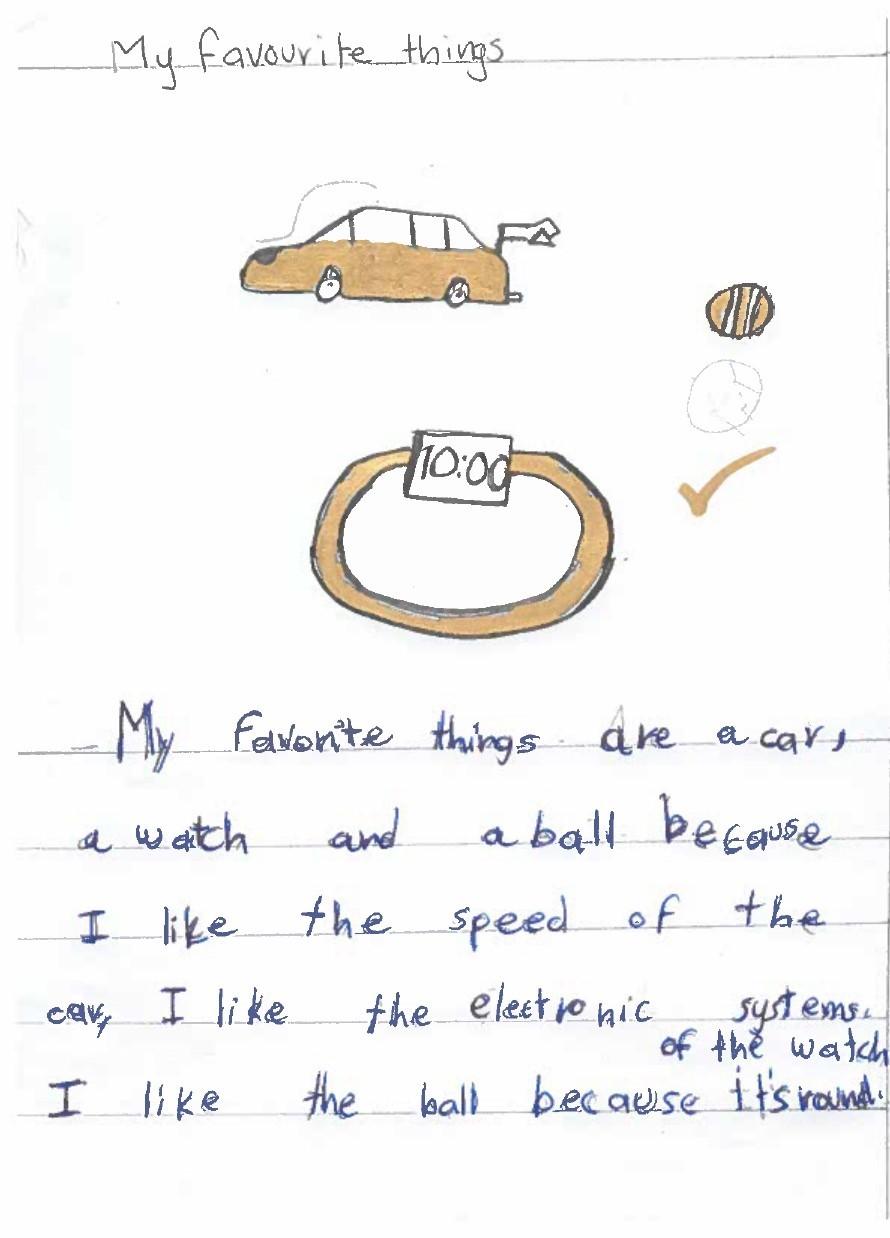 My favourite things
10:00
My favorite things are a car,
a watch and a ball because
I like the speed of the
car, I like the electronic systems.
of the watch
I like the ball because it's round.